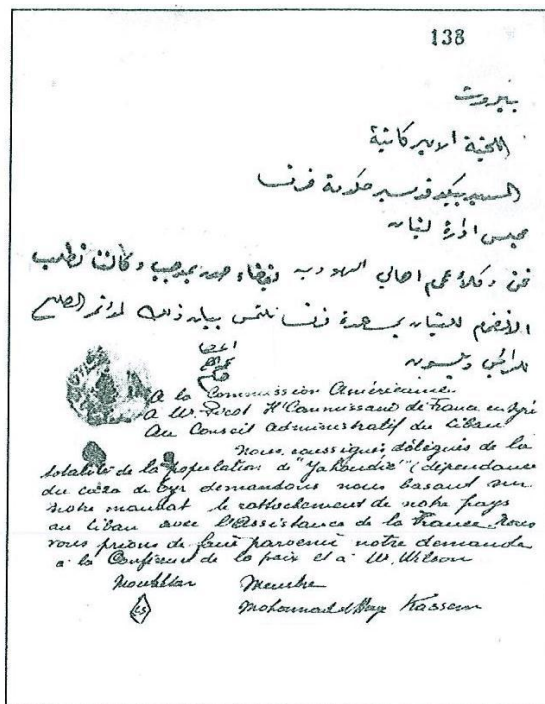 138
بيروت
اللجنة الاميركانية
المسيو بيكو قومسير حكومة فرنسا
مجلس ادارة لبنان
نحن وكلاء عموم اهالي اليهودية بقضاء صور بموجب وكالتنا نطلب
الانضمام للبنان بمساعدة فرنسا نلتمس بيان ذلك لمؤتمر الصلح
ويلسون
A la Commission Américaine
A M. Picot Ht Commissaire de France en Syrie
Au Conseil administratif du Liban
Nous soussignés, délégués de la
totalité de la population de "Yahoudié" (dépendance
du caza de Tyr demandons nous basant sur
notre mandat le rattachement de notre pays
au Liban avec l'Assistance de la France. Nous
vous prions de faire parvenir notre demande
à la Conférence de la paix et à M. Wilson
Moukhtar Membre
LS Mohammad Kassem